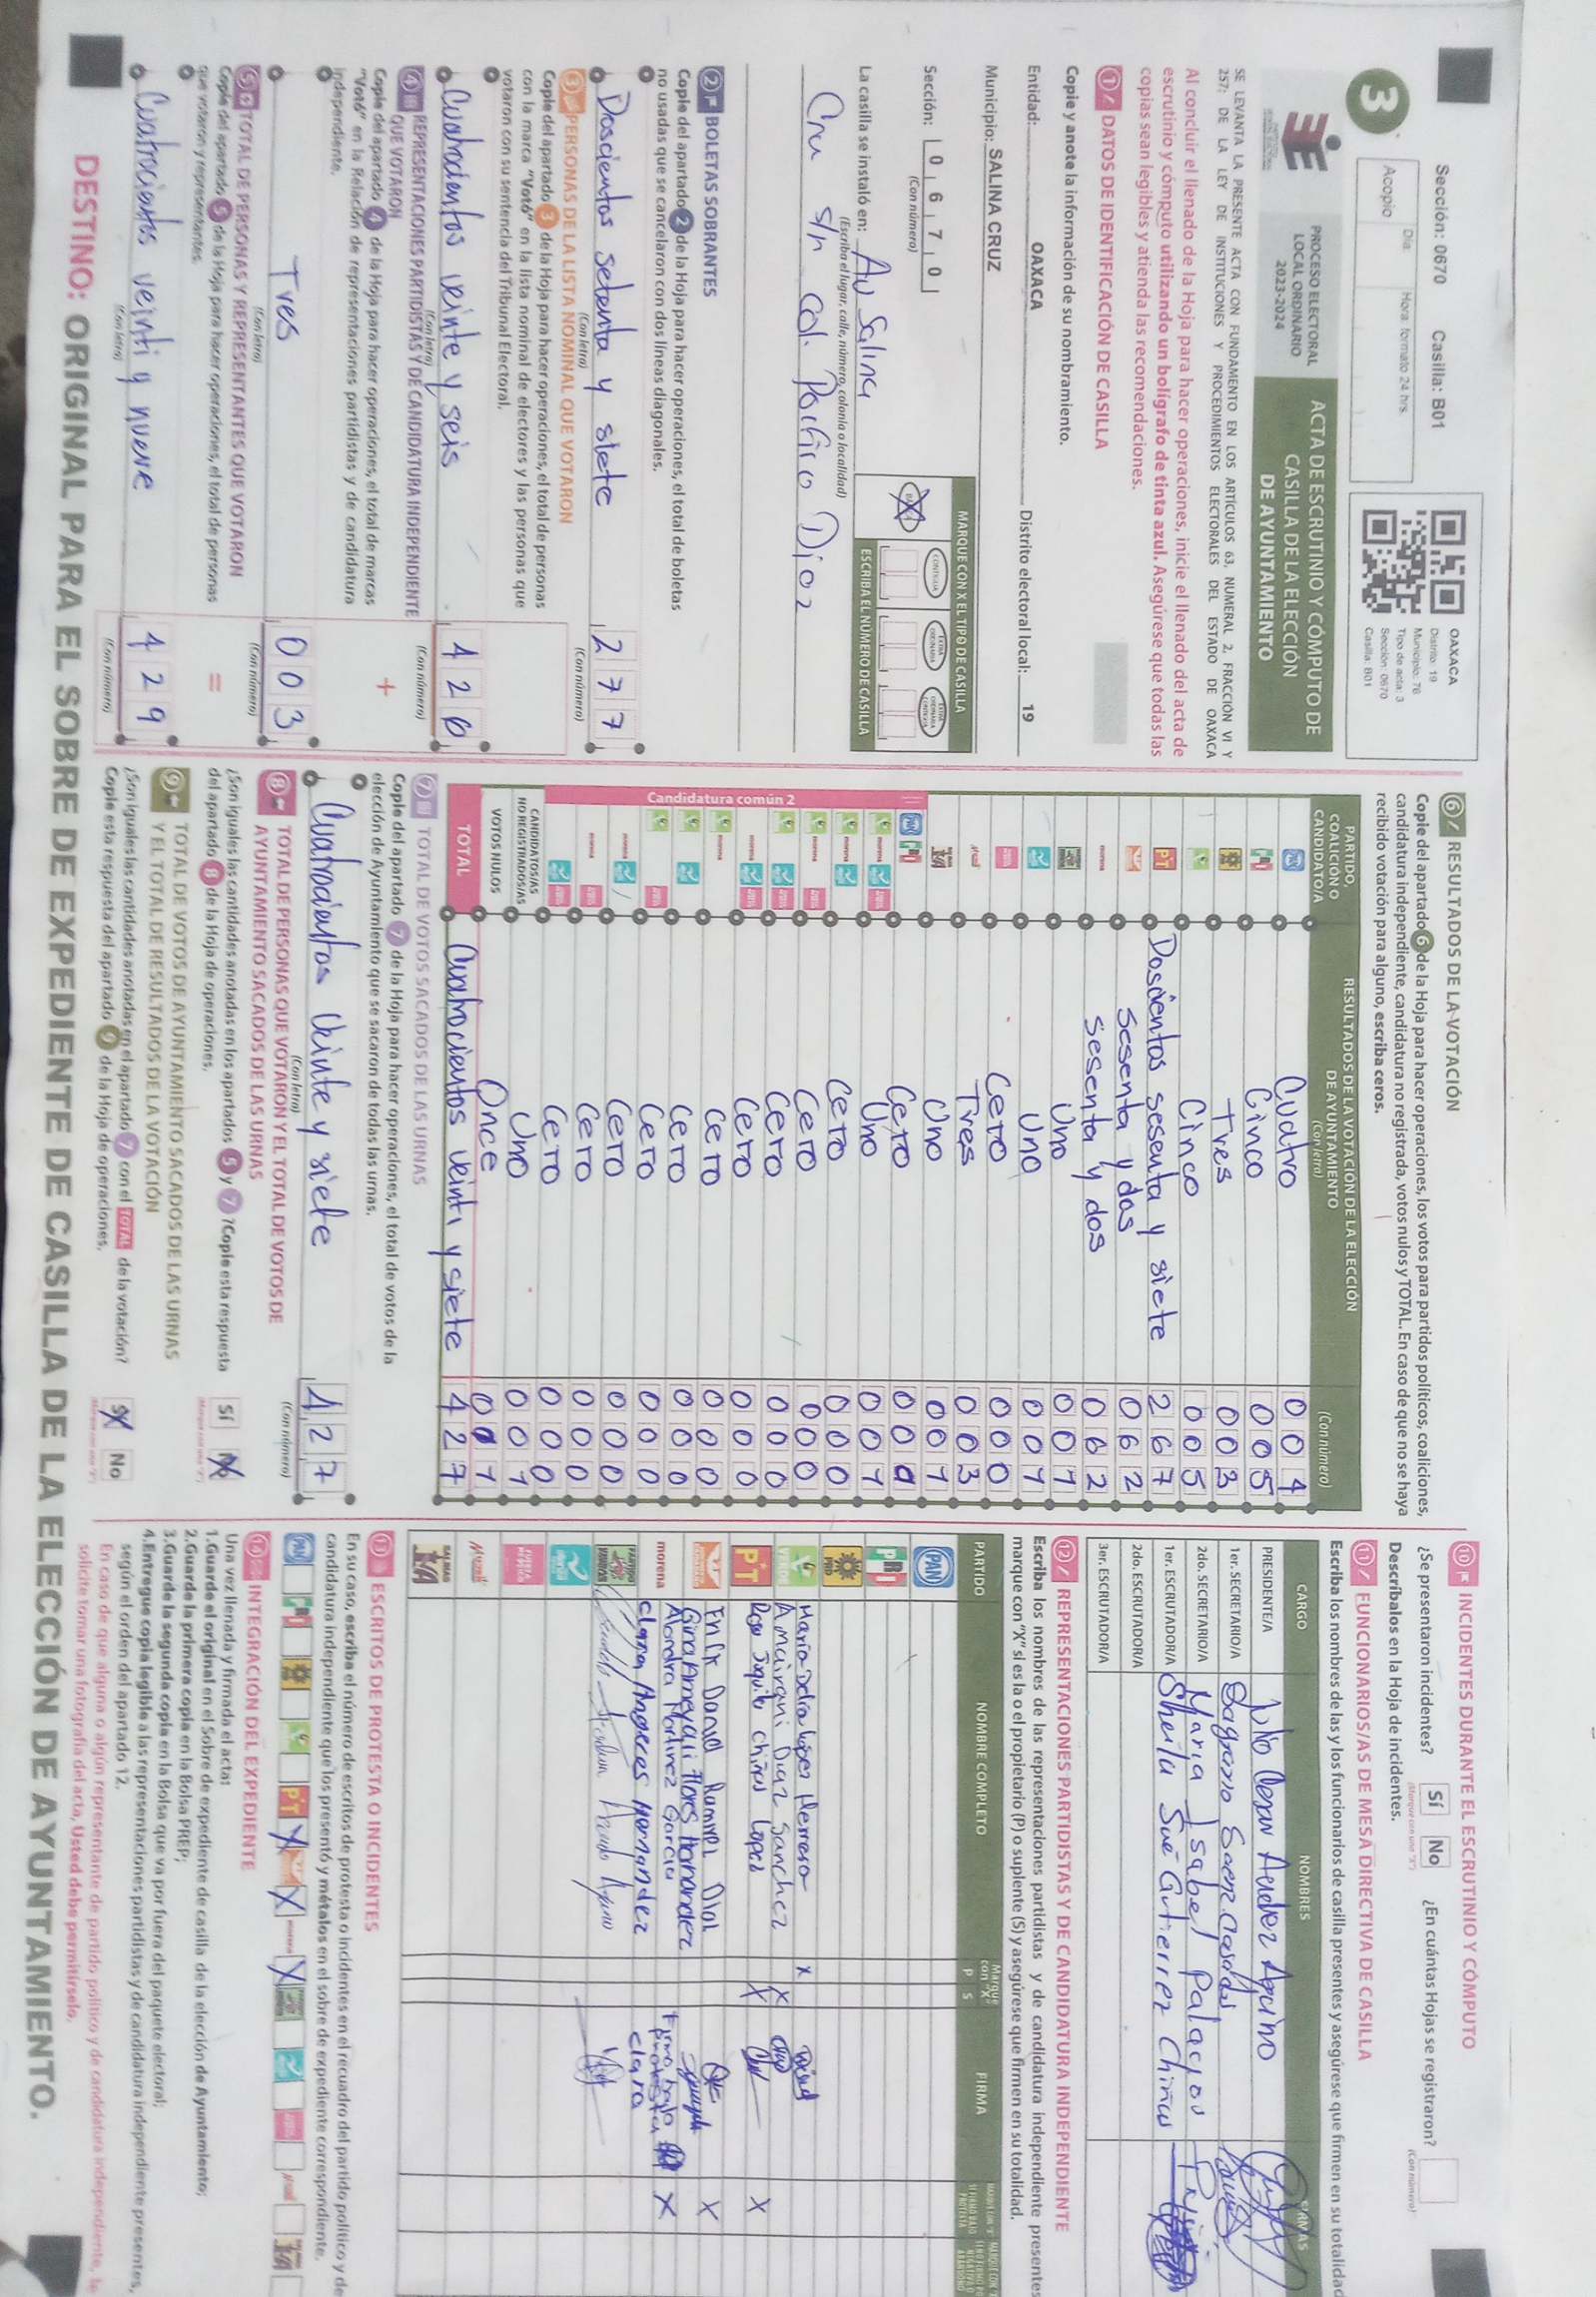 3
Sección: 0670 Casilla: B01
Día. Hora formato 24 hrs.
Acopio
OAXACA
Distrito: 19
Municipio: 76
Tipo de acta: 3
Sección: 0670
Casilla: B01
PROCESO ELECTORAL
LOCAL ORDINARIO
2023-2024
ACTA DE ESCRUTINIO Y CÓMPUTO DE
CASILLA DE LA ELECCIÓN
DE AYUNTAMIENTO
SE LEVANTA LA PRESENTE ACTA CON FUNDAMENTO EN LOS ARTÍCULOS 63, NUMERAL 2, FRACCIÓN VI Y
257; DE LA LEY DE INSTITUCIONES Y PROCEDIMIENTOS ELECTORALES DEL ESTADO DE OAXACA
Al concluir el llenado de la Hoja para hacer operaciones, inicie el llenado del acta de
escrutinio y cómputo utilizando un bolígrafo de tinta azul. Asegúrese que todas las
copias sean legibles y atienda las recomendaciones.
1 DATOS DE IDENTIFICACIÓN DE CASILLA
Copie y anote la información de su nombramiento.
Entidad: OAXACA Distrito electoral local: 19
Municipio: SALINA CRUZ
Sección: 0670
(Con número)
MARQUE CON X EL TIPO DE CASILLA
CONTIGUA
EXTRA ORDINARIA
EXTRA ORDINARIA CONTIGUA
ESCRIBA EL NÚMERO DE CASILLA
La casilla se instaló en: Av Salina
(Escriba el lugar, calle, número, colonia o localidad)
Cru s/n Col. Porfirio Diaz
2 BOLETAS SOBRANTES
Copie del apartado 2 de la Hoja para hacer operaciones, el total de boletas
no usadas que se cancelaron con dos líneas diagonales.
Doscientos setenta y siete 277
(Con letra) (Con número)
3 PERSONAS DE LA LISTA NOMINAL QUE VOTARON
Copie del apartado 3 de la Hoja para hacer operaciones, el total de personas
con la marca "Votó" en la lista nominal de electores y las personas que
votaron con su sentencia del Tribunal Electoral.
Cuatrocientos veinte y seis 426
(Con letra) (Con número)
4 REPRESENTACIONES PARTIDISTAS Y DE CANDIDATURA INDEPENDIENTE
QUE VOTARON
Copie del apartado 4 de la Hoja para hacer operaciones, el total de marcas
"Votó" en la Relación de representaciones partidistas y de candidatura
independiente.
+
Tres 003
(Con letra) (Con número)
5 TOTAL DE PERSONAS Y REPRESENTANTES QUE VOTARON
Copie del apartado 5 de la Hoja para hacer operaciones, el total de personas
que votaron y representantes.
=
Cuatrocientos veinti y nueve 429
(Con letra) (Con número)
6 RESULTADOS DE LA VOTACIÓN
Copie del apartado 6 de la Hoja para hacer operaciones, los votos para partidos políticos, coaliciones,
candidatura independiente, candidatura no registrada, votos nulos y TOTAL. En caso de que no se haya
recibido votación para alguno, escriba ceros.
PARTIDO, COALICIÓN O CANDIDATO/A
RESULTADOS DE LA VOTACIÓN DE LA ELECCIÓN DE AYUNTAMIENTO
(Con letra) (Con número)
PAN Cuatro 004
PRI Cinco 005
Tres 003
Cinco 005
PT Doscientos sesenta y siete 267
Sesenta y dos 062
morena Sesenta y dos 062
Uno 001
Uno 001
Cero 000
Tres 003
Uno 001
PAN PRI Cero 000
Candidatura común 2
morena Uno 001
morena Cero 000
morena Cero 000
Cero 000
morena Cero 000
morena Cero 000
Cero 000
Cero 000
morena Cero 000
morena Cero 000
Cero 000
CANDIDATOS/AS NO REGISTRADOS/AS Uno 001
VOTOS NULOS Once 011
TOTAL Cuatrocientos veinti y siete 427
7 TOTAL DE VOTOS SACADOS DE LAS URNAS
Copie del apartado 7 de la Hoja para hacer operaciones, el total de votos de la
elección de Ayuntamiento que se sacaron de todas las urnas.
Cuatrocientos veinte y siete 427
(Con letra) (Con número)
8 TOTAL DE PERSONAS QUE VOTARON Y EL TOTAL DE VOTOS DE
AYUNTAMIENTO SACADOS DE LAS URNAS
¿Son iguales las cantidades anotadas en los apartados 5 y 7? Copie esta respuesta
del apartado 8 de la Hoja de operaciones.
Sí No
9 TOTAL DE VOTOS DE AYUNTAMIENTO SACADOS DE LAS URNAS
Y EL TOTAL DE RESULTADOS DE LA VOTACIÓN
¿Son iguales las cantidades anotadas en el apartado 7 con el TOTAL de la votación?
Copie esta respuesta del apartado 9 de la Hoja de operaciones.
Sí No
10 INCIDENTES DURANTE EL ESCRUTINIO Y CÓMPUTO
¿Se presentaron incidentes? Sí No ¿En cuántas Hojas se registraron?
(Marque con una "X") (Con número)
Descríbalos en la Hoja de incidentes.
11 FUNCIONARIOS/AS DE MESA DIRECTIVA DE CASILLA
Escriba los nombres de las y los funcionarios de casilla presentes y asegúrese que firmen en su totalidad
CARGO NOMBRES FIRMAS
PRESIDENTE/A Julio Cesar Aquino
1er. SECRETARIO/A Saenz
2do. SECRETARIO/A Maria Isabel Palacios
1er. ESCRUTADOR/A Sheila Sué Gutierrez Chiñas
2do. ESCRUTADOR/A
3er. ESCRUTADOR/A
12 REPRESENTACIONES PARTIDISTAS Y DE CANDIDATURA INDEPENDIENTE
Escriba los nombres de las representaciones partidistas y de candidatura independiente presentes
marque con "X" si es la o el propietario (P) o suplente (S) y asegúrese que firmen en su totalidad.
PARTIDO NOMBRE COMPLETO Marque con "X" P S FIRMA
PAN
PRI
PRD
VERDE Maria Delia López Herrera X
Amairani Diaz Sanchez X
PT Rosa Iquita Chiñas Lopez X X
Daniel Ramirez Diaz X
Gina Ameyalli Flores Hernandez
morena Alondra Martinez Garcia Firmo bajo protesta X
Clara Angeles Hernandez clara
13 ESCRITOS DE PROTESTA O INCIDENTES
En su caso, escriba el número de escritos de protesta o incidentes en el recuadro del partido político y de
candidatura independiente que los presentó y métalos en el sobre de expediente correspondiente.
PAN PRI PT X X morena X
14 INTEGRACIÓN DEL EXPEDIENTE
Una vez llenada y firmada el acta:
1.Guarde el original en el Sobre de expediente de casilla de la elección de Ayuntamiento;
2.Guarde la primera copia en la Bolsa PREP;
3.Guarde la segunda copia en la Bolsa que va por fuera del paquete electoral;
4.Entregue copia legible a las representaciones partidistas y de candidatura independiente presentes,
según el orden del apartado 12.
En caso de que alguna o algún representante de partido político y de candidatura independiente, le
solicite tomar una fotografía del acta, Usted debe permitírselo.
DESTINO: ORIGINAL PARA EL SOBRE DE EXPEDIENTE DE CASILLA DE LA ELECCIÓN DE AYUNTAMIENTO.